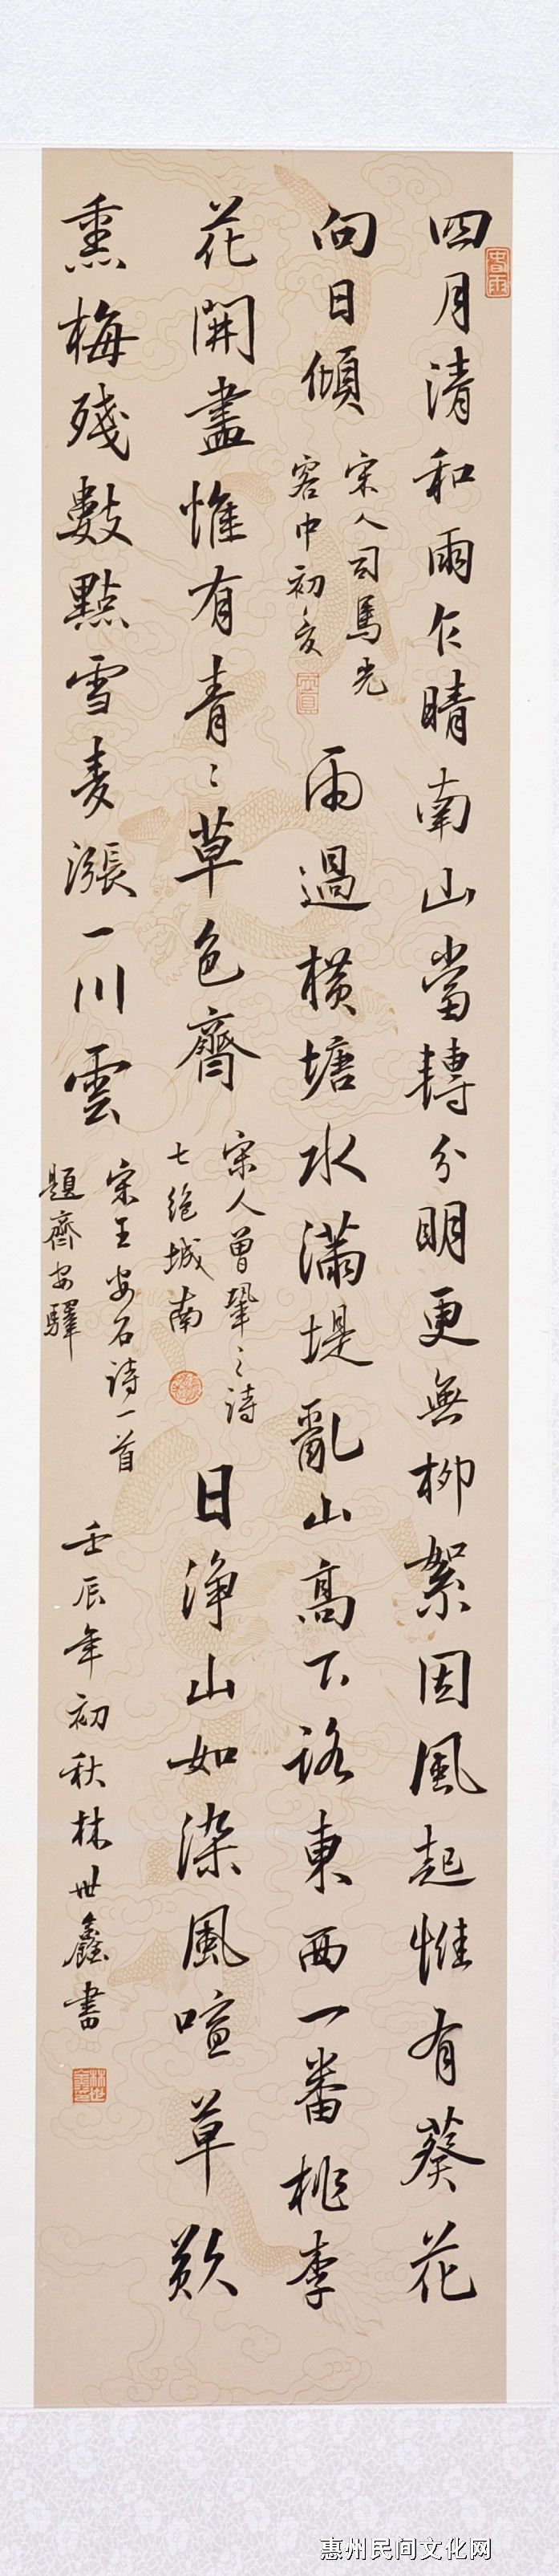 四月清和雨乍晴南山當轉分明更無柳絮因風起惟有葵花
向日傾
宋人司馬光
客中初夏
雨過橫塘水滿堤亂山高下路東西一番桃李
花開盡惟有青〻草色齊
宋人曾鞏〻詩
七絕城南
日淨山如染風喧草欲
熏梅殘數點雪麥漲一川雲
宋王安石詩一首
題齊安驛
壬辰年初秋林世鑫書
惠州民间文化网